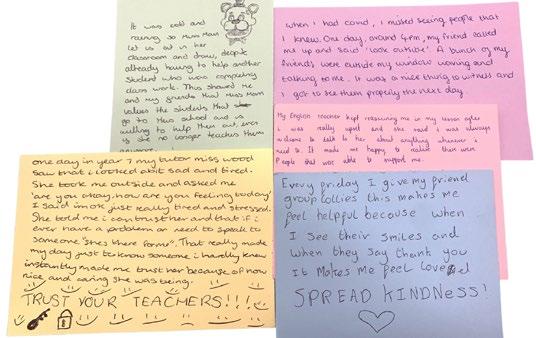 It was cold and
raining so Miss Mam
let us sit in her
classroom and draw, despite
already having to help another
student who were completing
class work. This showed me
and my friends that Miss Mam
values the students that
go to Mem's school and is
willing to help them out, even
if she no longer teaches them
anymore. !
When I had covid, I missed seeing people that
I knew. One day, around 4pm, my friend called
me up and said 'look outside'. A bunch of my
friends were outside my window waving and
talking to me. It was a nice thing to witness and
I got to see them properly the next day.
My English teacher kept reassuring me in my lesson after
i was really upset and she said i was always
welcome to talk to her about anything whenever i
need to. It made me happy to realise there were
People that was able to support me.
one day in year 7 my tutor miss wood
saw that i looked abit sad and tired.
She took me outside and asked me
'are you okay, how are you feeling today'
i said im ok just really tired and stressed.
She told me i can trust her and that if i
ever have a problem or need to speak to
someone "shes there for me". That really made
my day just to know someone i hardly knew
instantly made me trust her because of how
nice and caring she was being.
TRUST YOUR TEACHERS!!!!
Every friday I give my friend
group lollies this makes me
feel helpful because when
I see their smiles and
when they say thank you
It makes me feel loved
SPREAD KINDNESS!